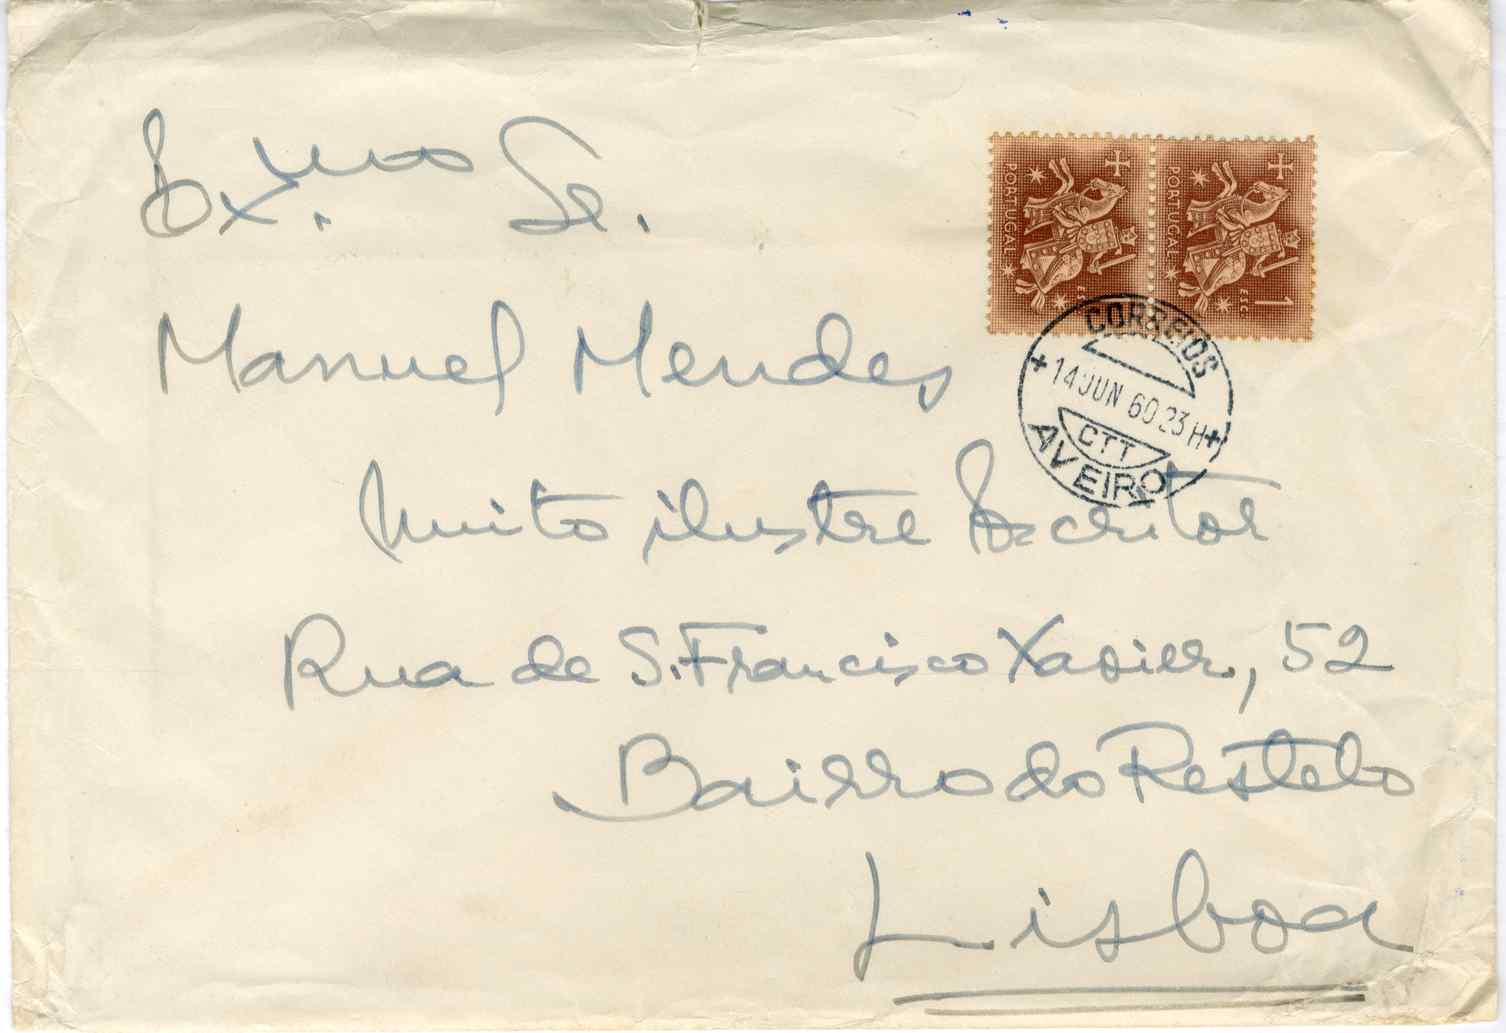 Ex.mo Sr.
Manuel Mendes
Muito ilustre Escritor
Rua de S. Francisco Xavier, 52
Bairro do Restelo
Lisboa
PORTUGAL
ESC.
PORTUGAL
1 ESC.
CORREIOS
14 JUN 60 23 H
CTT
AVEIRO